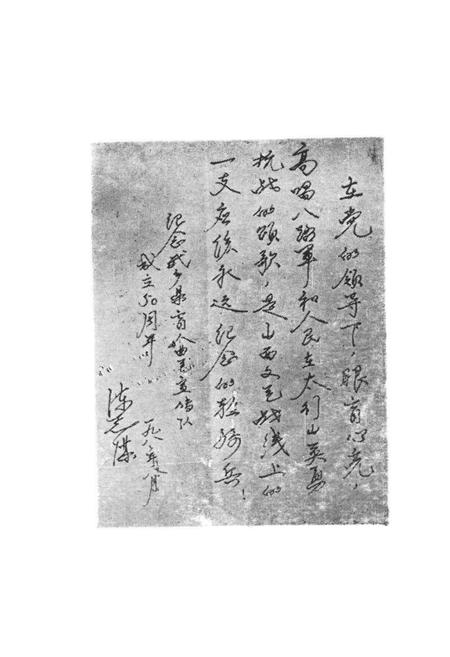 在党的领导下，眼盲心亮，
高唱八路军和人民在太行山英勇
抗战的颂歌，是山西文艺战线上的
一支应该永远纪念的轻骑兵！
纪念武乡县盲人曲艺宣传队
成立50周年
陈志
一九八八年八月